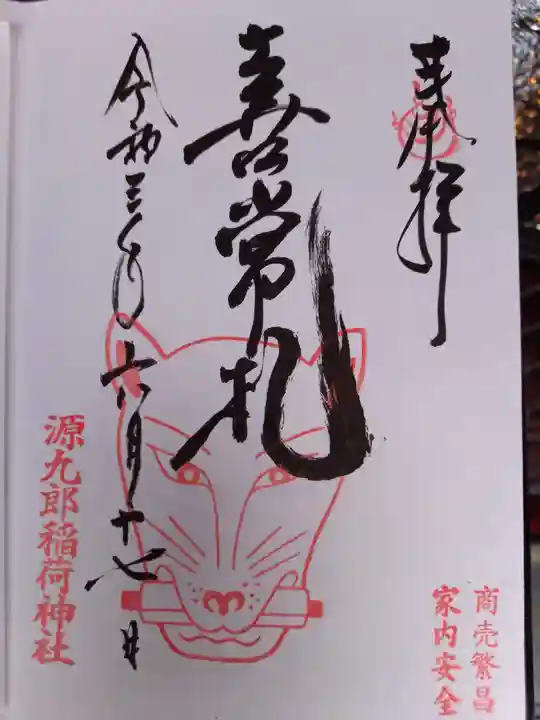 奉拝
喜常札
令和三年六月十七日
源九郎稲荷神社
商売繁昌
家内安全